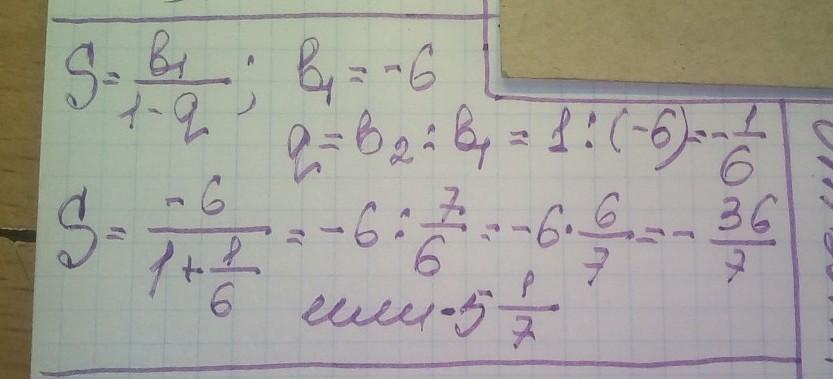 S = b₁/(1-q); b₁ = -6
q = b₂ : b₁ = 1 : (-6) = -1/6
S = -6/(1+1/6) = -6 : 7/6 = -6 · 6/7 = -36/7
или -5 1/7